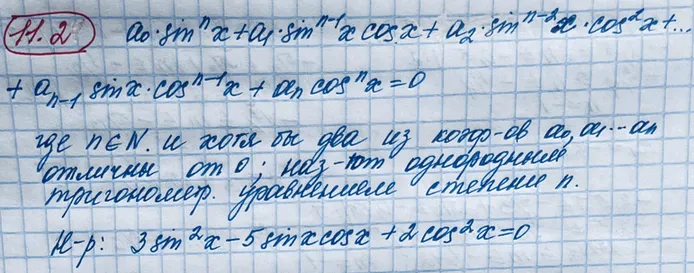 11.2 a₀·sinⁿx+a₁·sinⁿ⁻¹x cosx+a₂·sinⁿ⁻²x·cos²x+...
+ aₙ₋₁ sinx·cosⁿ⁻¹x + aₙ cosⁿx=0
где n∈N. и хотя бы два из коэф-ов a₀,a₁...aₙ
отличны от 0; наз-ют однородным
тригонометр. уравнением степени n.
Н-р: 3sin²x-5sinxcosx+2cos²x=0